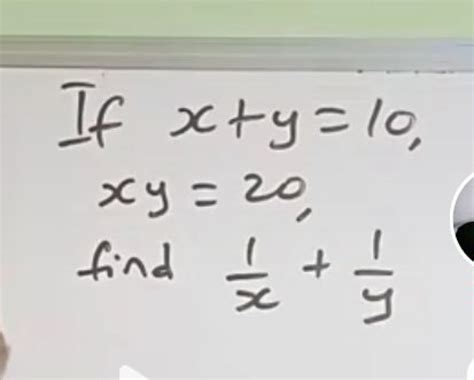 If x+y=10,
xy=20,
find 1/x + 1/y